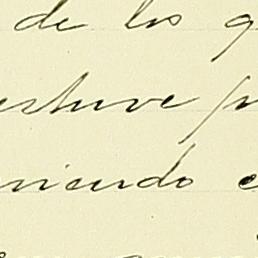 de los q
estuve p
niendo e